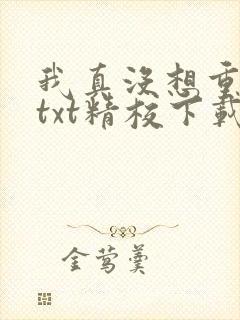 我真没想重
txt精校下载
金莺羹